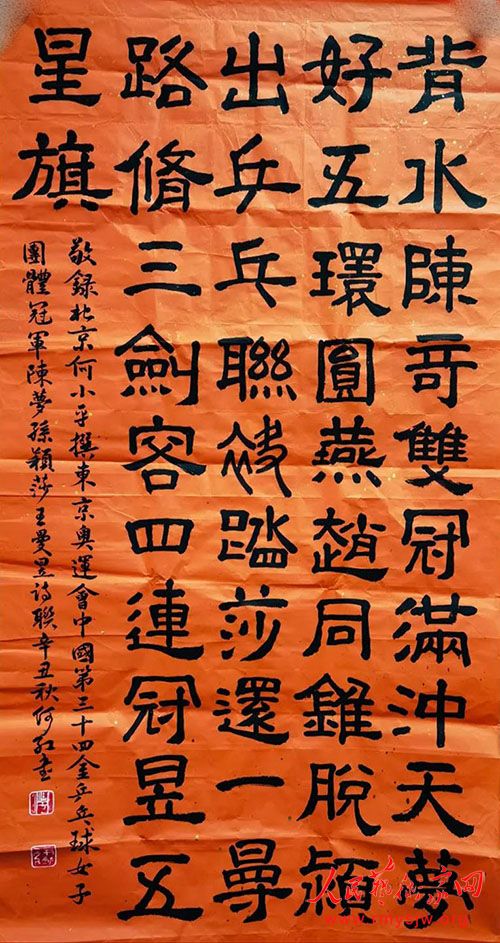 背水陳奇雙冠滿沖天夢
好五環圓燕趙同錐脫穎
出乒乓聯袂踏莎還一尋
路脩三劍客四連冠昱五
星旗
敬錄北京何小平撰東京奧運會中國第三十四金乒乓球女子
團體冠軍陳夢孫穎莎王曼昱詩聯辛丑秋何書
人民藝術家网